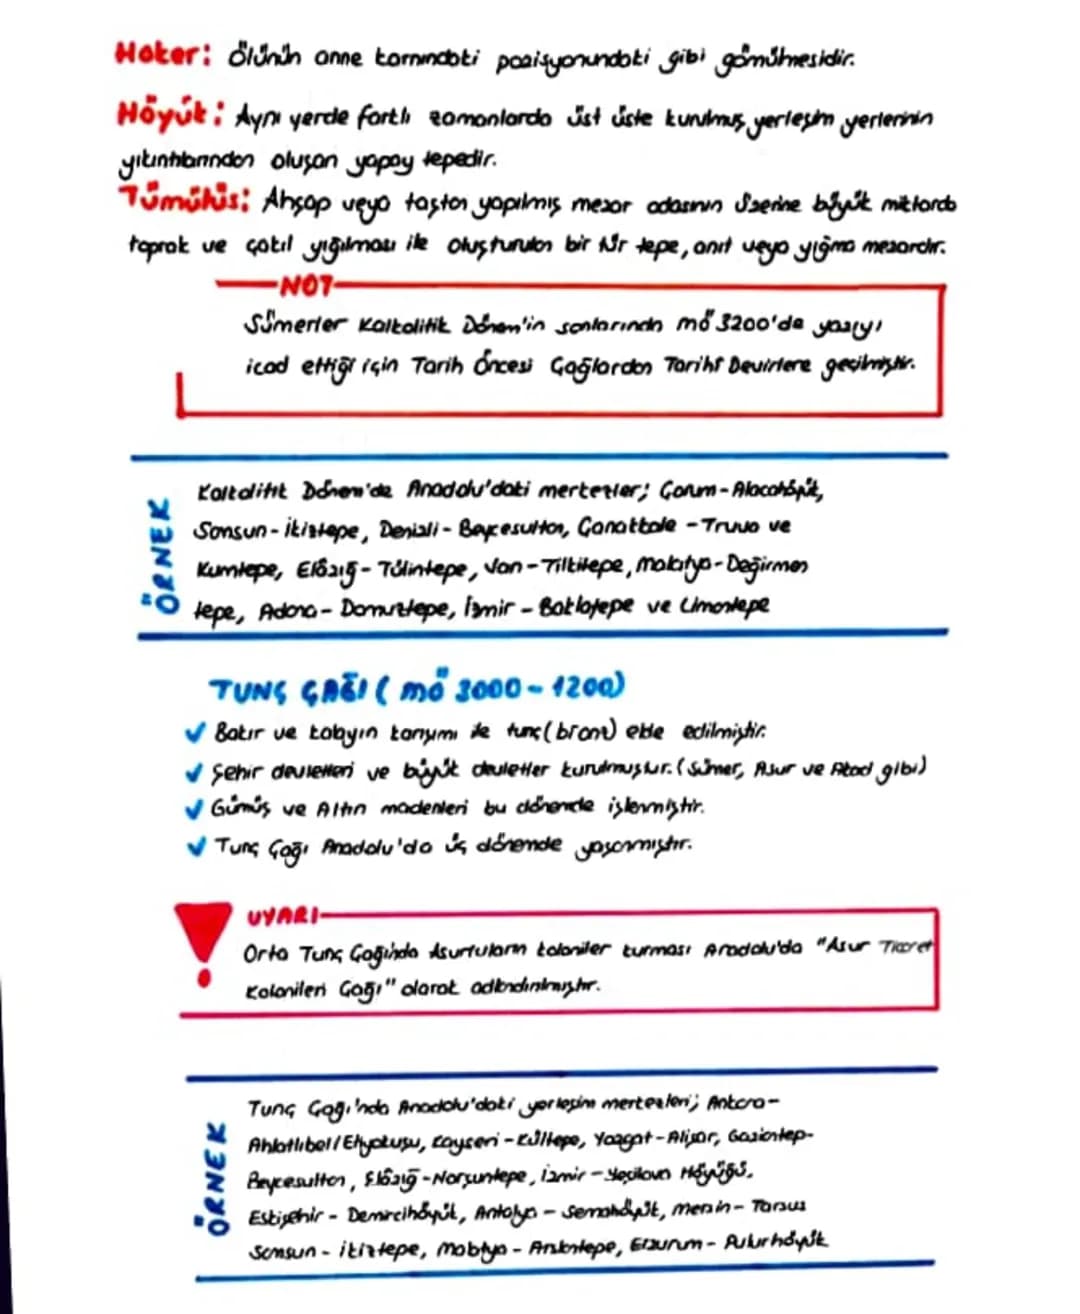 Hoker: Ölünün anne karnındaki pozisyonundaki gibi gömülmesidir.
Höyük: Aynı yerde farklı zamanlarda üst üste kurulmuş yerleşim yerlerinin
yıkıntılarından oluşan yapay tepedir.
Tümülüs: Ahşap veya taştan yapılmış mezar odasının üzerine büyük miktarda
toprak ve çakıl yığılması ile oluşturulan bir tür tepe, anıt veya yığma mezardır.
NOT
Sümerler Kalkolitik Dönem'in sonlarında mö 3200'de yazıyı
icad ettiği için Tarih Öncesi Çağlardan Tarihî Devirlere geçilmiştir.
ÖRNEK
Kalkolitik Dönem'de Anadolu'daki merkezler; Çorum-Alacahöyük,
Samsun-İkiztepe, Denizli-Beycesultan, Çanakkale-Truva ve
Kumtepe, Elâzığ-Tülintepe, Van-Tilkitepe, Malatya-Değirmen
tepe, Adana-Domuztepe, İzmir-Baklatepe ve Limantepe
TUNÇ ÇAĞI (mö 3000-1200)
✓ Bakır ve kalayın karışımı ile tunç (bronz) elde edilmiştir.
✓ Şehir devletleri ve büyük devletler kurulmuştur. (Sümer, Asur ve Akad gibi)
✓ Gümüş ve Altın madenleri bu dönemde işlenmiştir.
✓ Tunç Çağı Anadolu'da üç dönemde yaşanmıştır.
UYARI
Orta Tunç Çağı'nda Asurluların koloniler kurması Anadolu'da "Asur Ticaret
Kolonileri Çağı" olarak adlandırılmıştır.
ÖRNEK
Tunç Çağı'nda Anadolu'daki yerleşim merkezleri; Ankara-
Ahlatlıbel/Etiyokuşu, Kayseri-Kültepe, Yozgat-Alişar, Gaziantep-
Beycesultan, Elâzığ-Norşuntepe, İzmir-Yeşilova Höyüğü,
Eskişehir-Demircihöyük, Antalya-Semahöyük, Mersin-Tarsus
Samsun-İkiztepe, Malatya-Arslantepe, Erzurum-Pulurhöyük